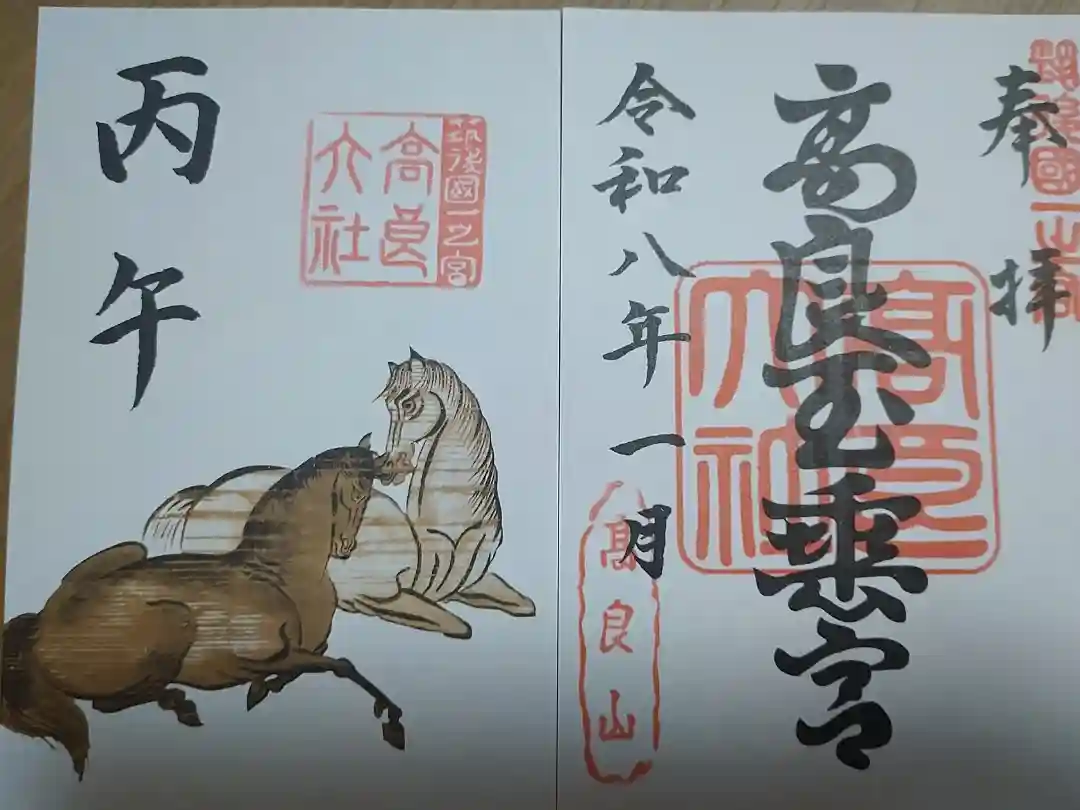 奉拝
筑後國一之宮
高良玉垂宮
高良大社
令和八年一月
高良山
丙午
筑後國一之宮
高良
大社